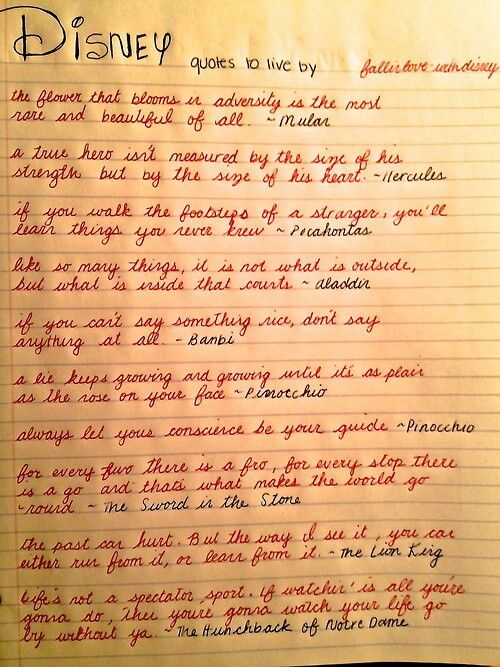 Disney
quotes to live by
fallinlove-withdisney
the flower that blooms in adversity is the most
rare and beautiful of all. ~Mulan
a true hero isn't measured by the size of his
strength but by the size of his heart. ~Hercules
if you walk the footsteps of a stranger, you'll
learn things you never knew ~Pocahontas
like so many things, it is not what is outside,
but what is inside that counts ~Aladdin
if you can't say something nice, don't say
anything at all. - Bambi
a lie keeps growing and growing until it's as plain
as the nose on your face ~Pinocchio
always let your conscience be your guide ~Pinocchio
for every there is a fro, for every stop there
is a go and that's what makes the world go
'round ~The Sword in the Stone
the past can hurt. But the way I see it, you can
either run from it, or learn from it. ~The Lion King
life's not a spectator sport. If watchin' is all you're
gonna do, then you're gonna watch your life go
by without ya. ~The Hunchback of Notre Dame